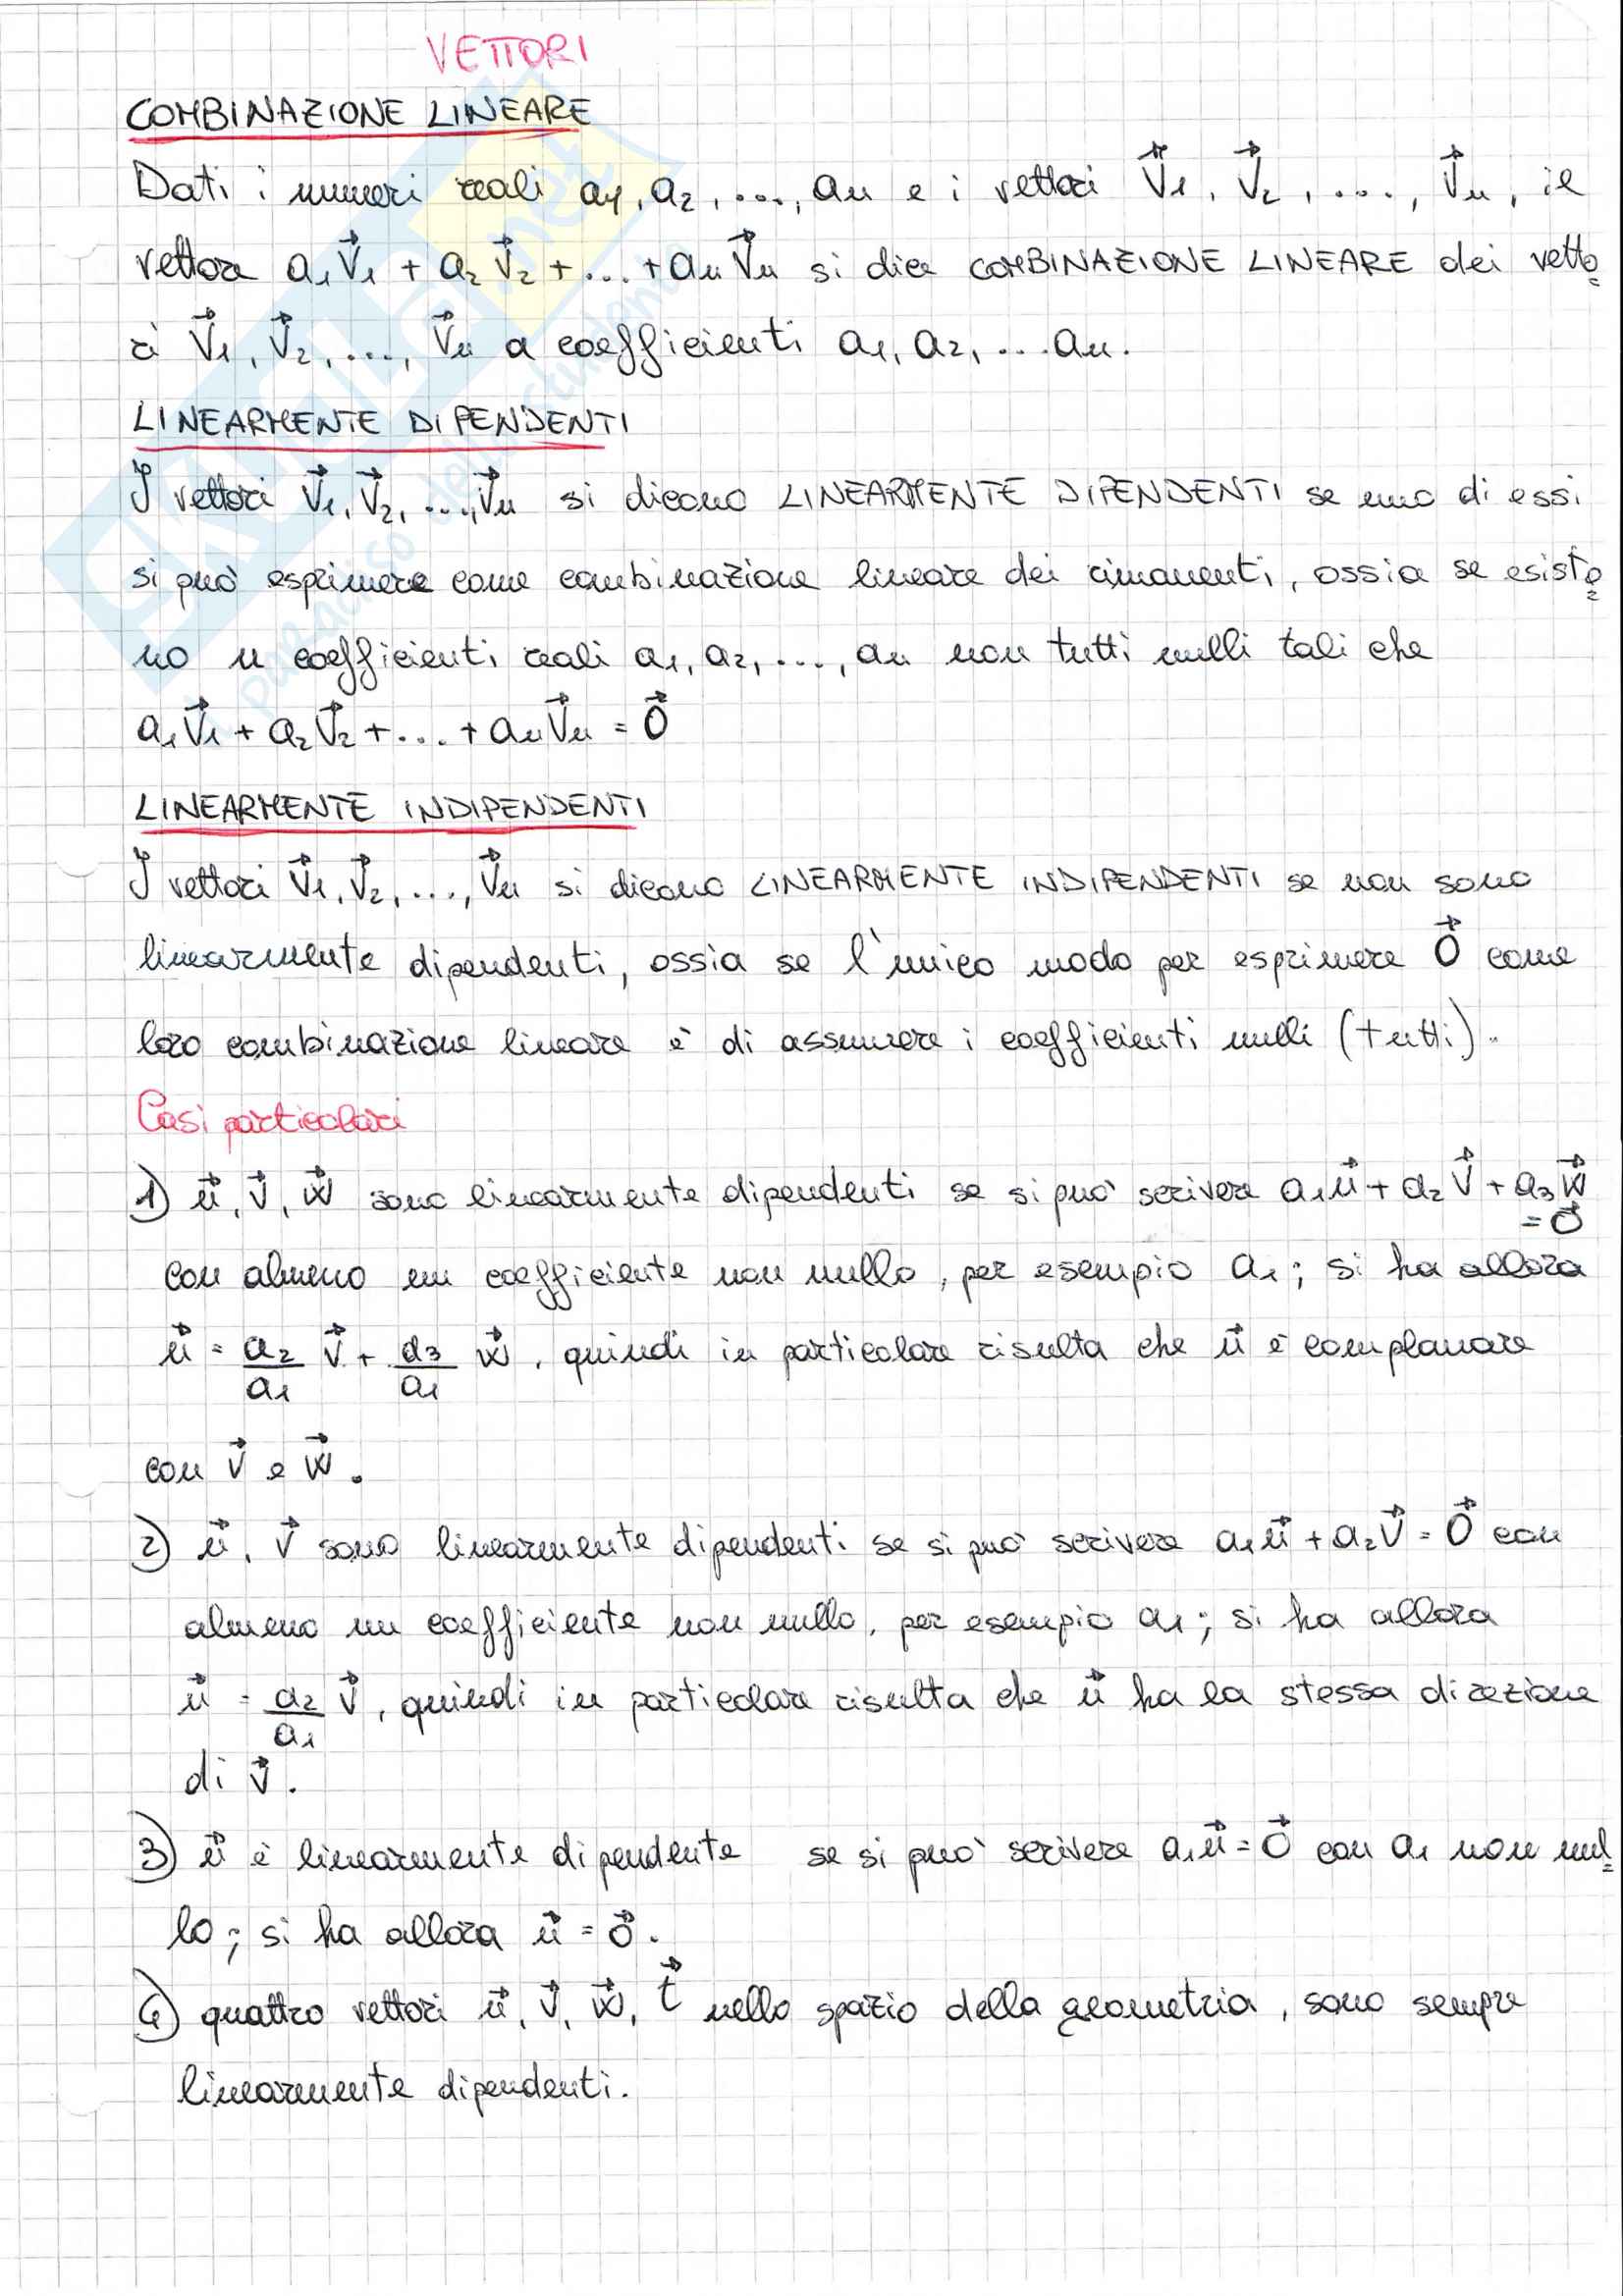 VETTORI
COMBINAZIONE LINEARE
Dati i numeri reali a₁, a₂, ..., aₙ e i vettori v⃗₁, v⃗₂, ..., v⃗ₙ, il
vettore a₁v⃗₁ + a₂v⃗₂ + ... + aₙv⃗ₙ si dice COMBINAZIONE LINEARE dei vetto
ri v⃗₁, v⃗₂, ..., v⃗ₙ a coefficienti a₁, a₂, ... aₙ.
LINEARMENTE DIPENDENTI
I vettori v⃗₁, v⃗₂, ..., v⃗ₙ si dicono LINEARMENTE DIPENDENTI se uno di essi
si può esprimere come combinazione lineare dei rimanenti, ossia se esisto
no n coefficienti reali a₁, a₂, ..., aₙ non tutti nulli tali che
a₁v⃗₁ + a₂v⃗₂ + ... + aₙv⃗ₙ = 0⃗
LINEARMENTE INDIPENDENTI
I vettori v⃗₁, v⃗₂, ..., v⃗ₙ si dicono LINEARMENTE INDIPENDENTI se non sono
linearmente dipendenti, ossia se l'unico modo per esprimere 0⃗ come
loro combinazione lineare è di assumere i coefficienti nulli (tutti).
Casi particolari
1) u⃗, v⃗, w⃗ sono linearmente dipendenti se si può scrivere a₁u⃗ + a₂v⃗ + a₃w⃗
= 0⃗
con almeno un coefficiente non nullo, per esempio a₁; si ha allora
u⃗ = a₂/a₁ v⃗ + a₃/a₁ w⃗, quindi in particolare risulta che u⃗ è complanare
con v⃗ e w⃗.
2) u⃗, v⃗ sono linearmente dipendenti se si può scrivere a₁u⃗ + a₂v⃗ = 0⃗ con
almeno un coefficiente non nullo, per esempio a₁; si ha allora
u⃗ = a₂/a₁ v⃗, quindi in particolare risulta che u⃗ ha la stessa direzione
di v⃗.
3) u⃗ è linearmente dipendente se si può scrivere a₁u⃗ = 0⃗ con a₁ non nul
lo; si ha allora u⃗ = 0⃗.
4) quattro vettori u⃗, v⃗, w⃗, t⃗ nello spazio della geometria, sono sempre
linearmente dipendenti.